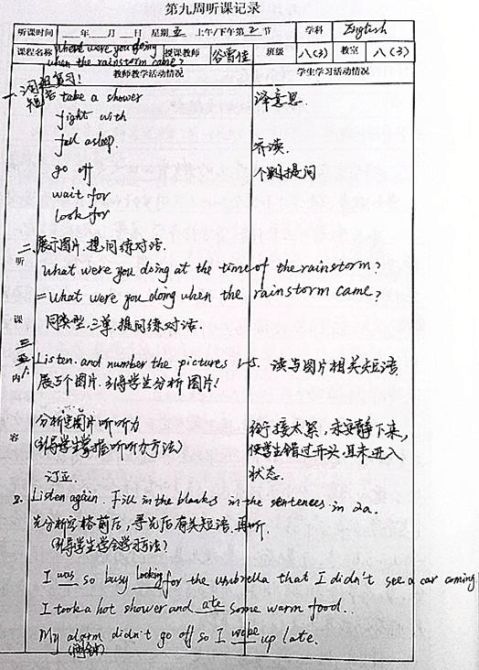 第九周听课记录
听课时间 ___年___月___日 星期五 上午/下午第2节 学科 English
课程名称 What were you doing when the rainstorm came? 授课教师 谷雪佳 班级 八(3) 教室 八(3)
教师教学活动情况 学生学习活动情况
一、词组复习!
短语 take a shower 译意思.
fight with
fall asleep. 齐读.
go off 个别提问
wait for
look for
二、展示图片.提问练对话.
What were you doing at the time of the rainstorm?
=What were you doing when the rainstorm came?
同类型.三单.提问练对话.
三
Listen and number the pictures 1-5. 读与图片相关短语
展5个图片.引导学生分析图片!
分析图片听听力 衔接太紧,未安静下来,
(引导学生掌握听听力方法) 使学生错过开头,且未进入
订正. 状态.
2. Listen again. Fill in the blanks in the sentences in 2a.
先分析空格前后,寻先后有关短语.再听.
(引导学生学会学习方法?)
I was so busy looking for the umbrella that I didn't see a car coming
I took a hot shower and ate some warm food.
My alarm didn't go off so I woke up late.
(闹钟)
听课内容